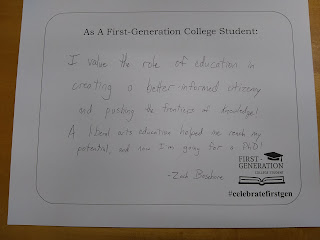 As A First-Generation College Student:
I value the role of education in
creating a better-informed citizenry
and pushing the frontiers of knowledge!
A liberal arts education helped me reach my
potential, and now I'm going for a PhD!
- Zach
FIRST-
GENERATION
COLLEGE STUDENT
#celebratefirstgen